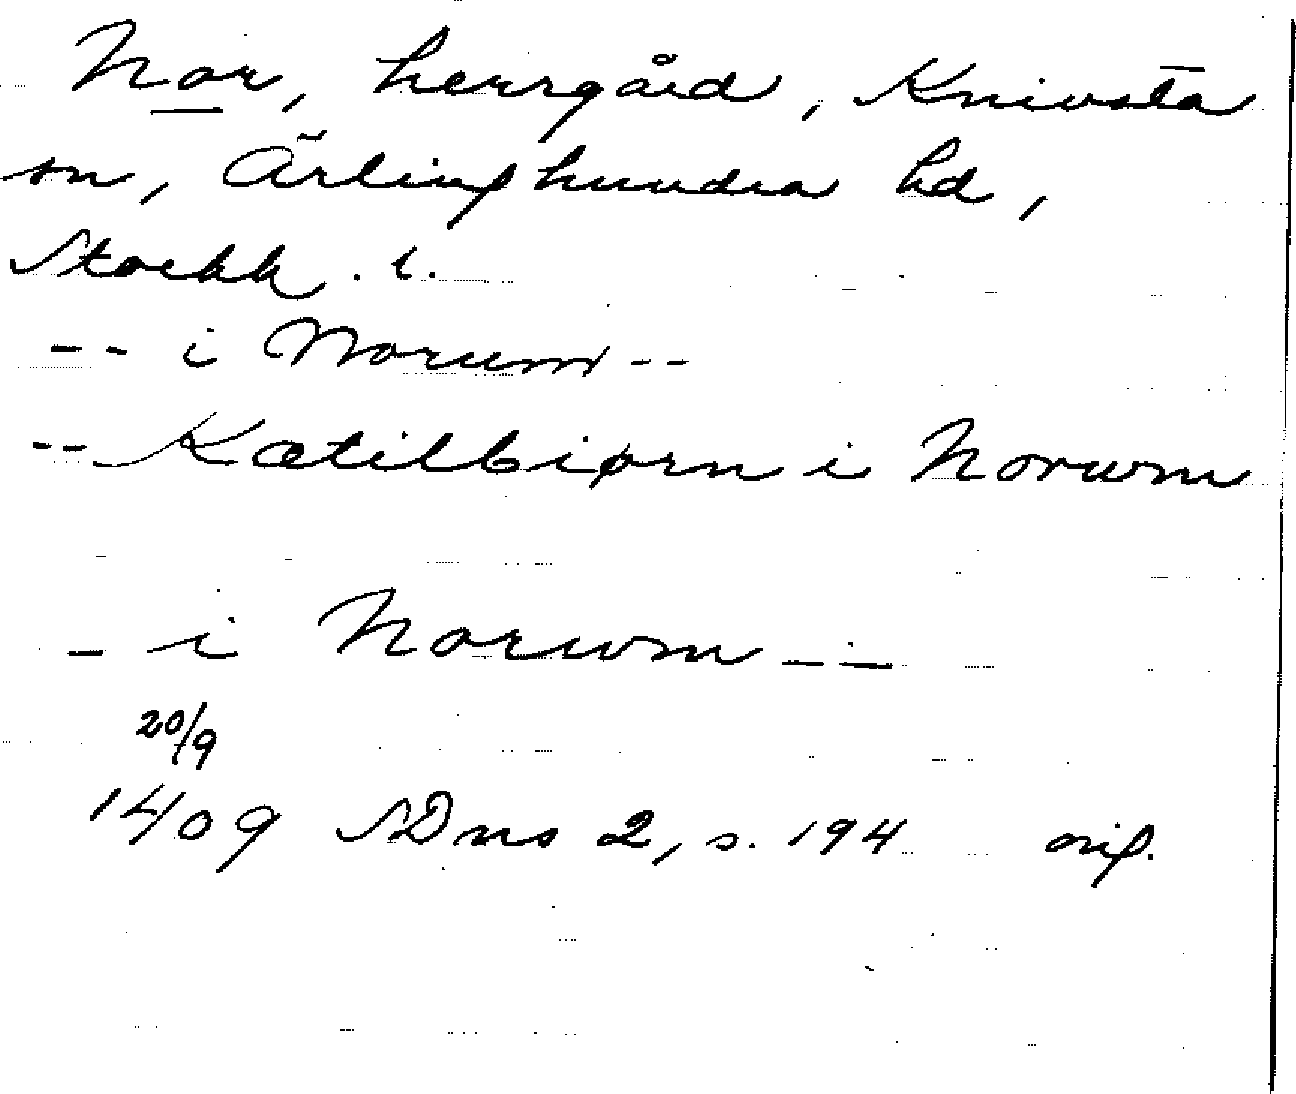 Nor, herrgård, Knivsta
sn, Ärlinghundra hd,
Stockh. l.
-- i Norum --
-- Kætilbiørn i Norwm
- i Norwm -- 
20/9
1409 SDns 2, s. 194 orig.